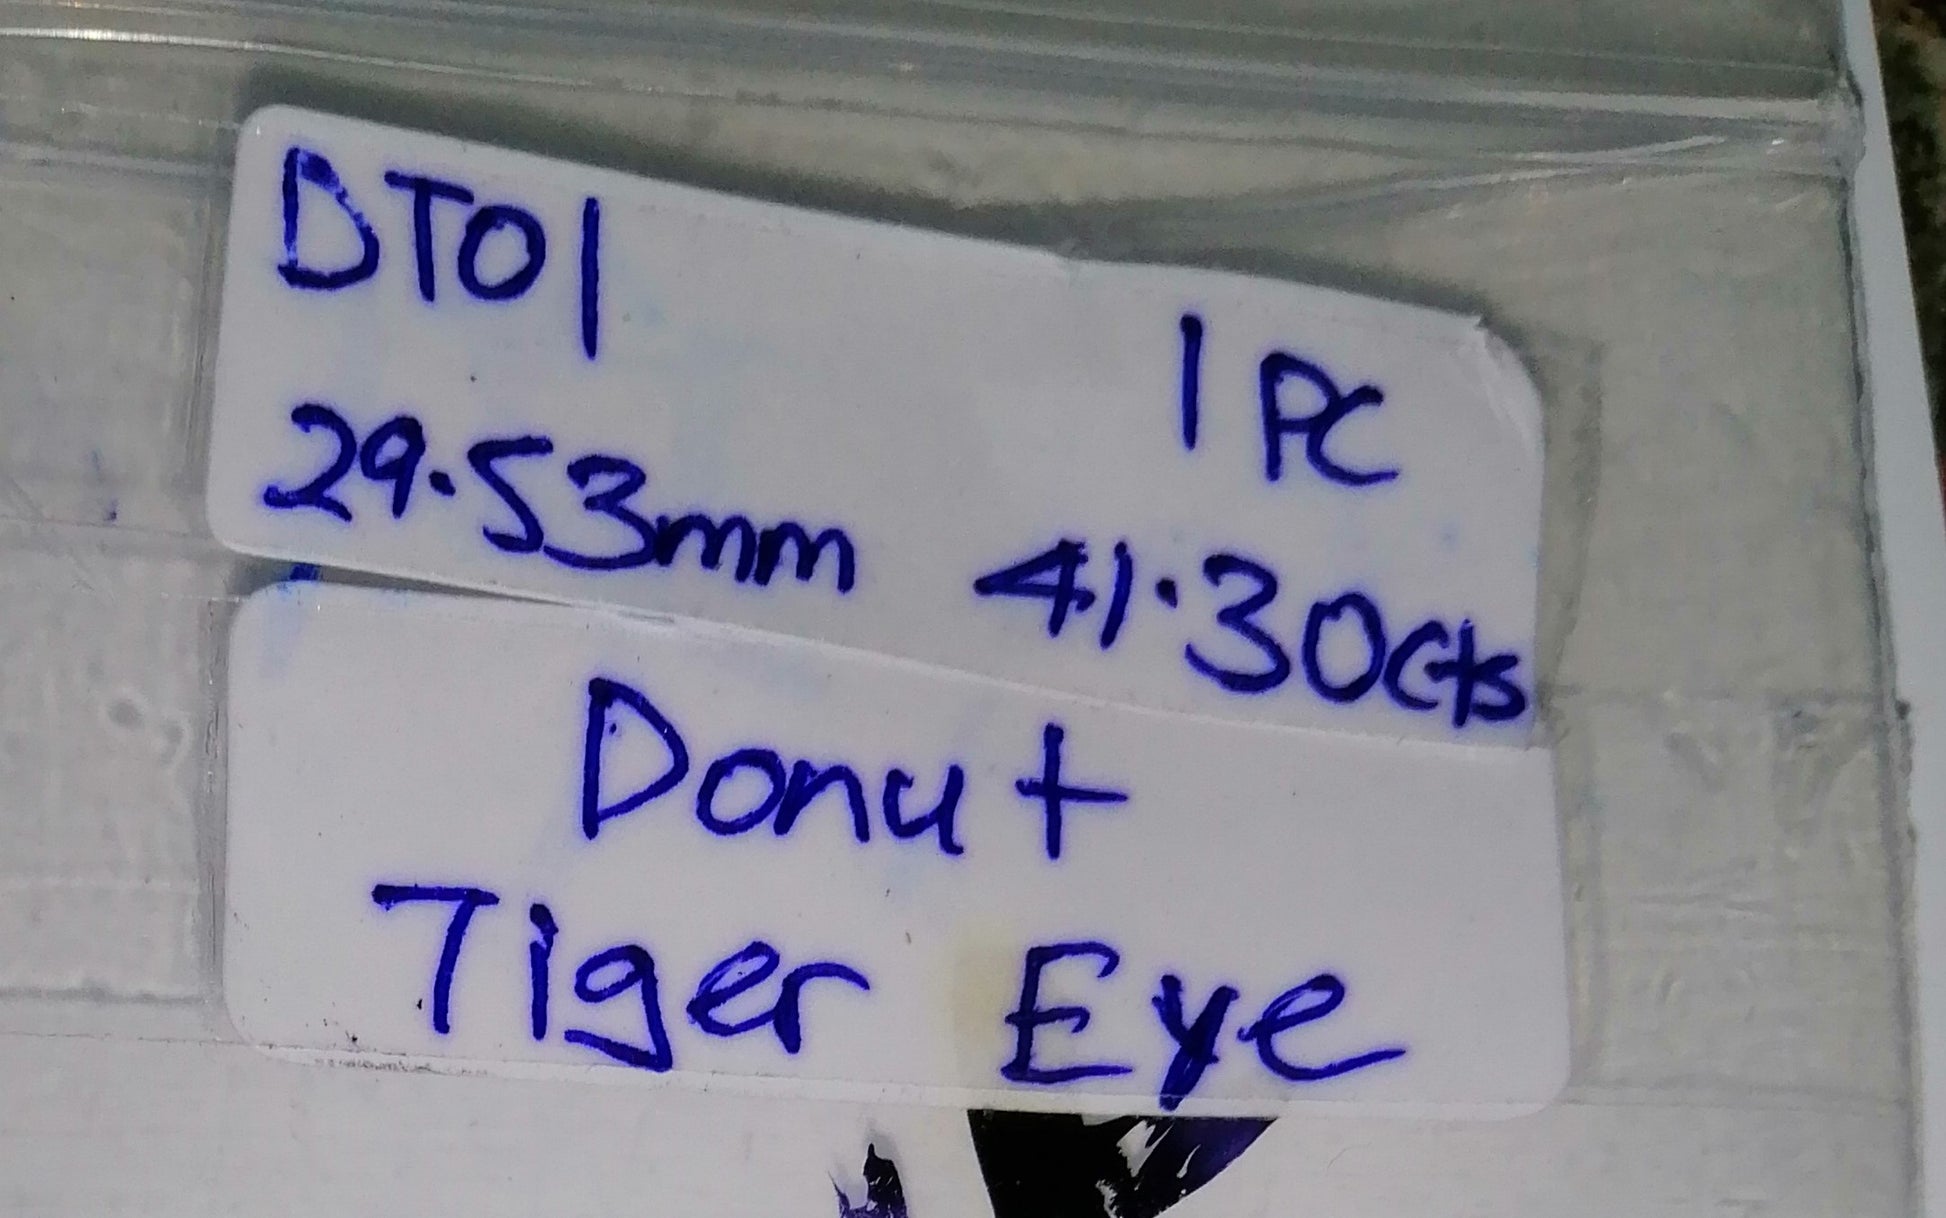 DT01
1 PC
29.53mm 41.30cts
Donut
Tiger Eye